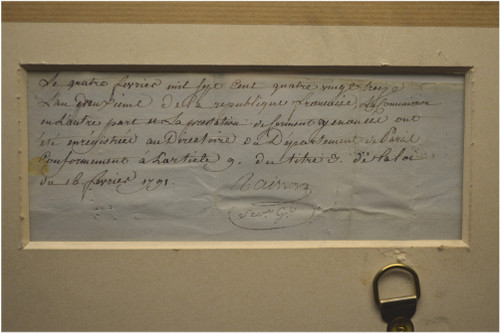 Le quatre fevrier mil sept cent quatre vingt treize
L'an deuxieme de la republique francaise, La Commission
en L'autre part et La prestation de serment y enoncée ont
été enregistrées au Directoire du Département de Paris
Conformement à L'article 9. du titre 3. de la loi
du 16 fevrier 1791.